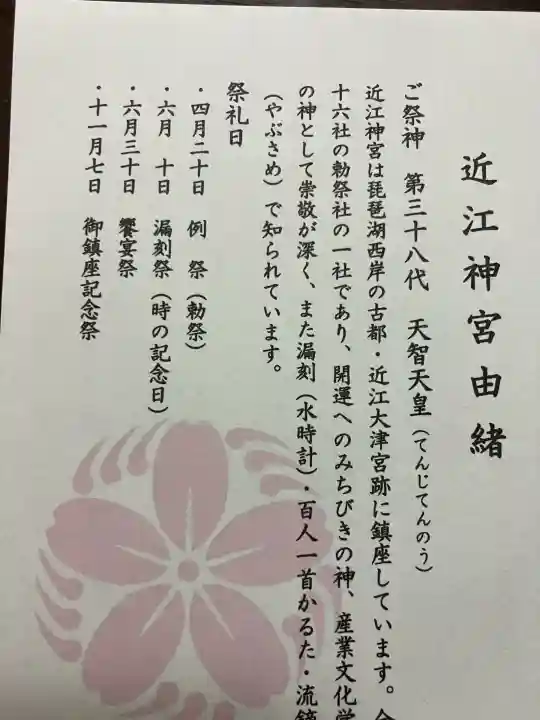 近江神宮由緒
ご祭神　第三十八代　天智天皇（てんじてんのう）
近江神宮は琵琶湖西岸の古都・近江大津宮跡に鎮座しています。全
十六社の勅祭社の一社であり、開運へのみちびきの神、産業文化学
の神として崇敬が深く、また漏刻（水時計）・百人一首かるた・流鏑
（やぶさめ）で知られています。
祭礼日
・四月二十日　例　祭（勅祭）
・六月　十日　漏刻祭（時の記念日）
・六月三十日　饗宴祭
・十一月七日　御鎮座記念祭